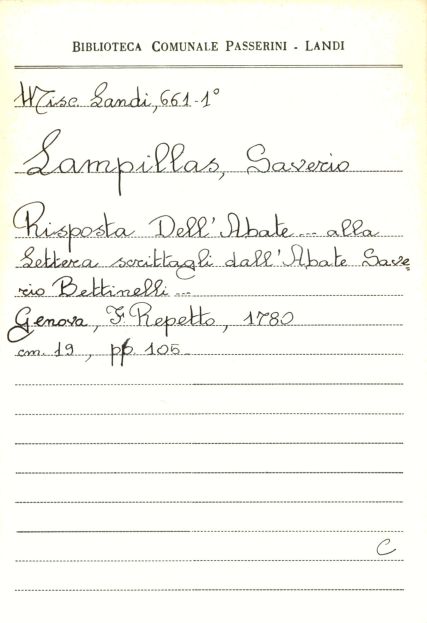 BIBLIOTECA COMUNALE PASSERINI - LANDI
Misc. Landi, 661-1°
Lampillas, Saverio
Risposta Dell'Abate ... alla
Lettera scrittagli dall'Abate Save
rio Bettinelli ...
Genova, F. Repetto, 1780
cm. 19, pp. 105.
C